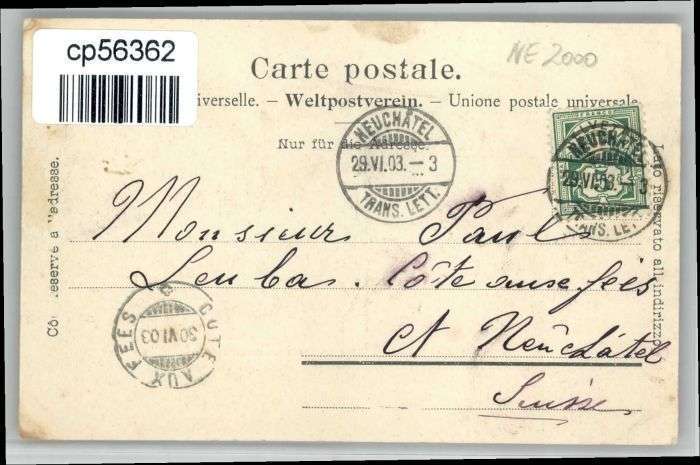 cp56362
NE 2000
Carte postale.
iverselle. – Weltpostverein. – Unione postale universale
Nur für die Adresse.
NEUCHÂTEL
29.VI.03. – 3
TRANS. LETT.
FRANCO
NEUCHÂTEL
29.VI.03. 3
TRANS. LETT.
Côté réservé à l'adresse.
Lato riservato all indirizzo
Monsieur Paul
Leubas. Côte aux fées
Ct Neûchâtel
Suisse
COTE AUX FEES
30 VI 03